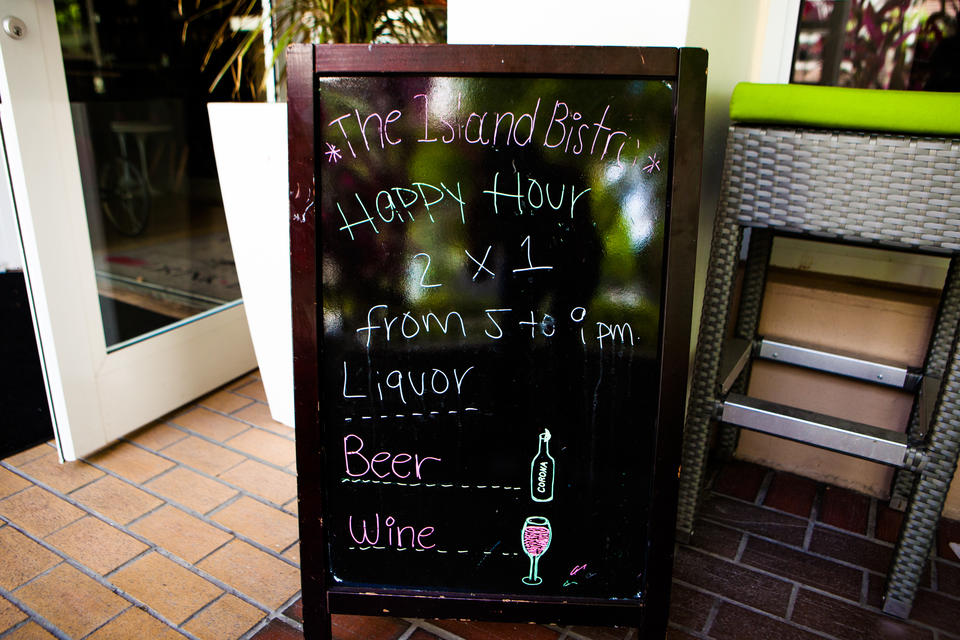 *The Island Bistro*
Happy Hour
2 x 1
from 5 to 9 pm.
Liquor
Beer
CORONA
Wine